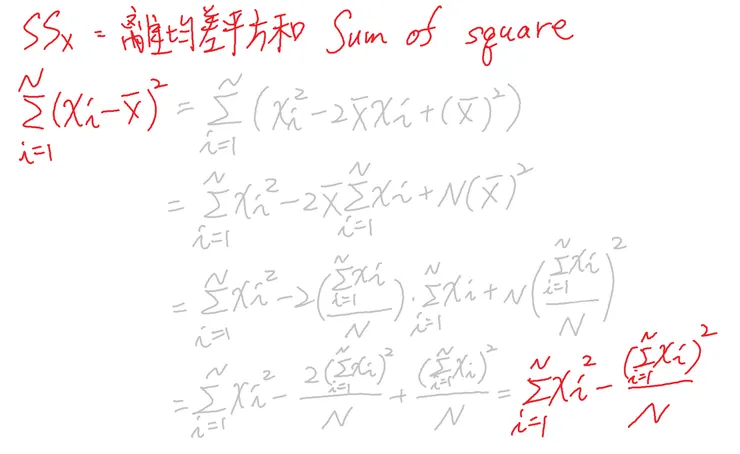 SSx = 離均差平方和 Sum of square
\sum_{i=1}^{N}(x_i-\bar{x})^2 = \sum_{i=1}^{N}(x_i^2-2\bar{x}x_i+(\bar{x})^2)
= \sum_{i=1}^{N}x_i^2-2\bar{x}\sum_{i=1}^{N}x_i+N(\bar{x})^2
= \sum_{i=1}^{N}x_i^2-2(\frac{\sum_{i=1}^{N}x_i}{N})\cdot\sum_{i=1}^{N}x_i+N(\frac{\sum_{i=1}^{N}x_i}{N})^2
= \sum_{i=1}^{N}x_i^2-\frac{2(\sum_{i=1}^{N}x_i)^2}{N}+\frac{(\sum_{i=1}^{N}x_i)^2}{N} = \sum_{i=1}^{N}x_i^2-\frac{(\sum_{i=1}^{N}x_i)^2}{N}